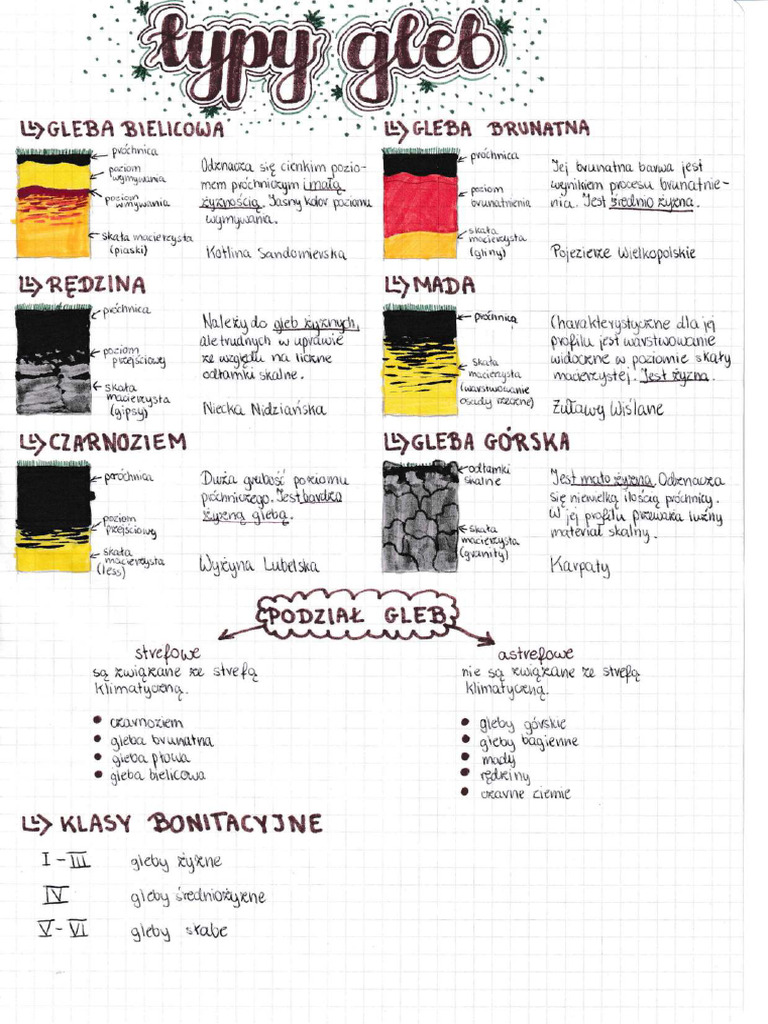 typy gleb
GLEBA BIELICOWA
próchnica
poziom
wymywania
poziom
wmywania
skała macierzysta
(piaski)
Odznacza się cienkim pozio-
mem próchniczym i małą
żyznością. Jasny kolor poziomu
wymywania.
Kotlina Sandomierska
GLEBA BRUNATNA
próchnica
poziom
brunatnienia
skała
macierzysta
(gliny)
Jej brunatna barwa jest
wynikiem procesu brunatnie-
nia. Jest średnio żyzna.
Pojezierze Wielkopolskie
RĘDZINA
próchnica
poziom
przejściowy
skała
macierzysta
(gipsy)
Należy do gleb żyznych,
ale trudnych w uprawie
ze względu na liczne
odłamki skalne.
Niecka Nidziańska
MADA
próchnica
skała
macierzysta
(warstwowane
osady rzeczne)
Charakterystyczne dla jej
profilu jest warstwowanie
widoczne w poziomie skały
macierzystej. Jest żyzna.
Żuławy Wiślane
CZARNOZIEM
próchnica
poziom
przejściowy
skała
macierzysta
(less)
Duża grubość poziomu
próchniczego. Jest bardzo
żyzną glebą.
Wyżyna Lubelska
GLEBA GÓRSKA
odłamki
skalne
skała
macierzysta
(granity)
Jest mało żyzna. Odznacza
się niewielką ilością próchnicy.
W jej profilu przeważa luźny
materiał skalny.
Karpaty
PODZIAŁ GLEB
strefowe
są związane ze strefą
klimatyczną.
czarnoziem
gleba brunatna
gleba płowa
gleba bielicowa
astrefowe
nie są związane ze strefą
klimatyczną.
gleby górskie
gleby bagienne
mady
rędziny
czarne ziemie
KLASY BONITACYJNE
I - III gleby żyzne
IV gleby średniożyzne
V - VI gleby słabe